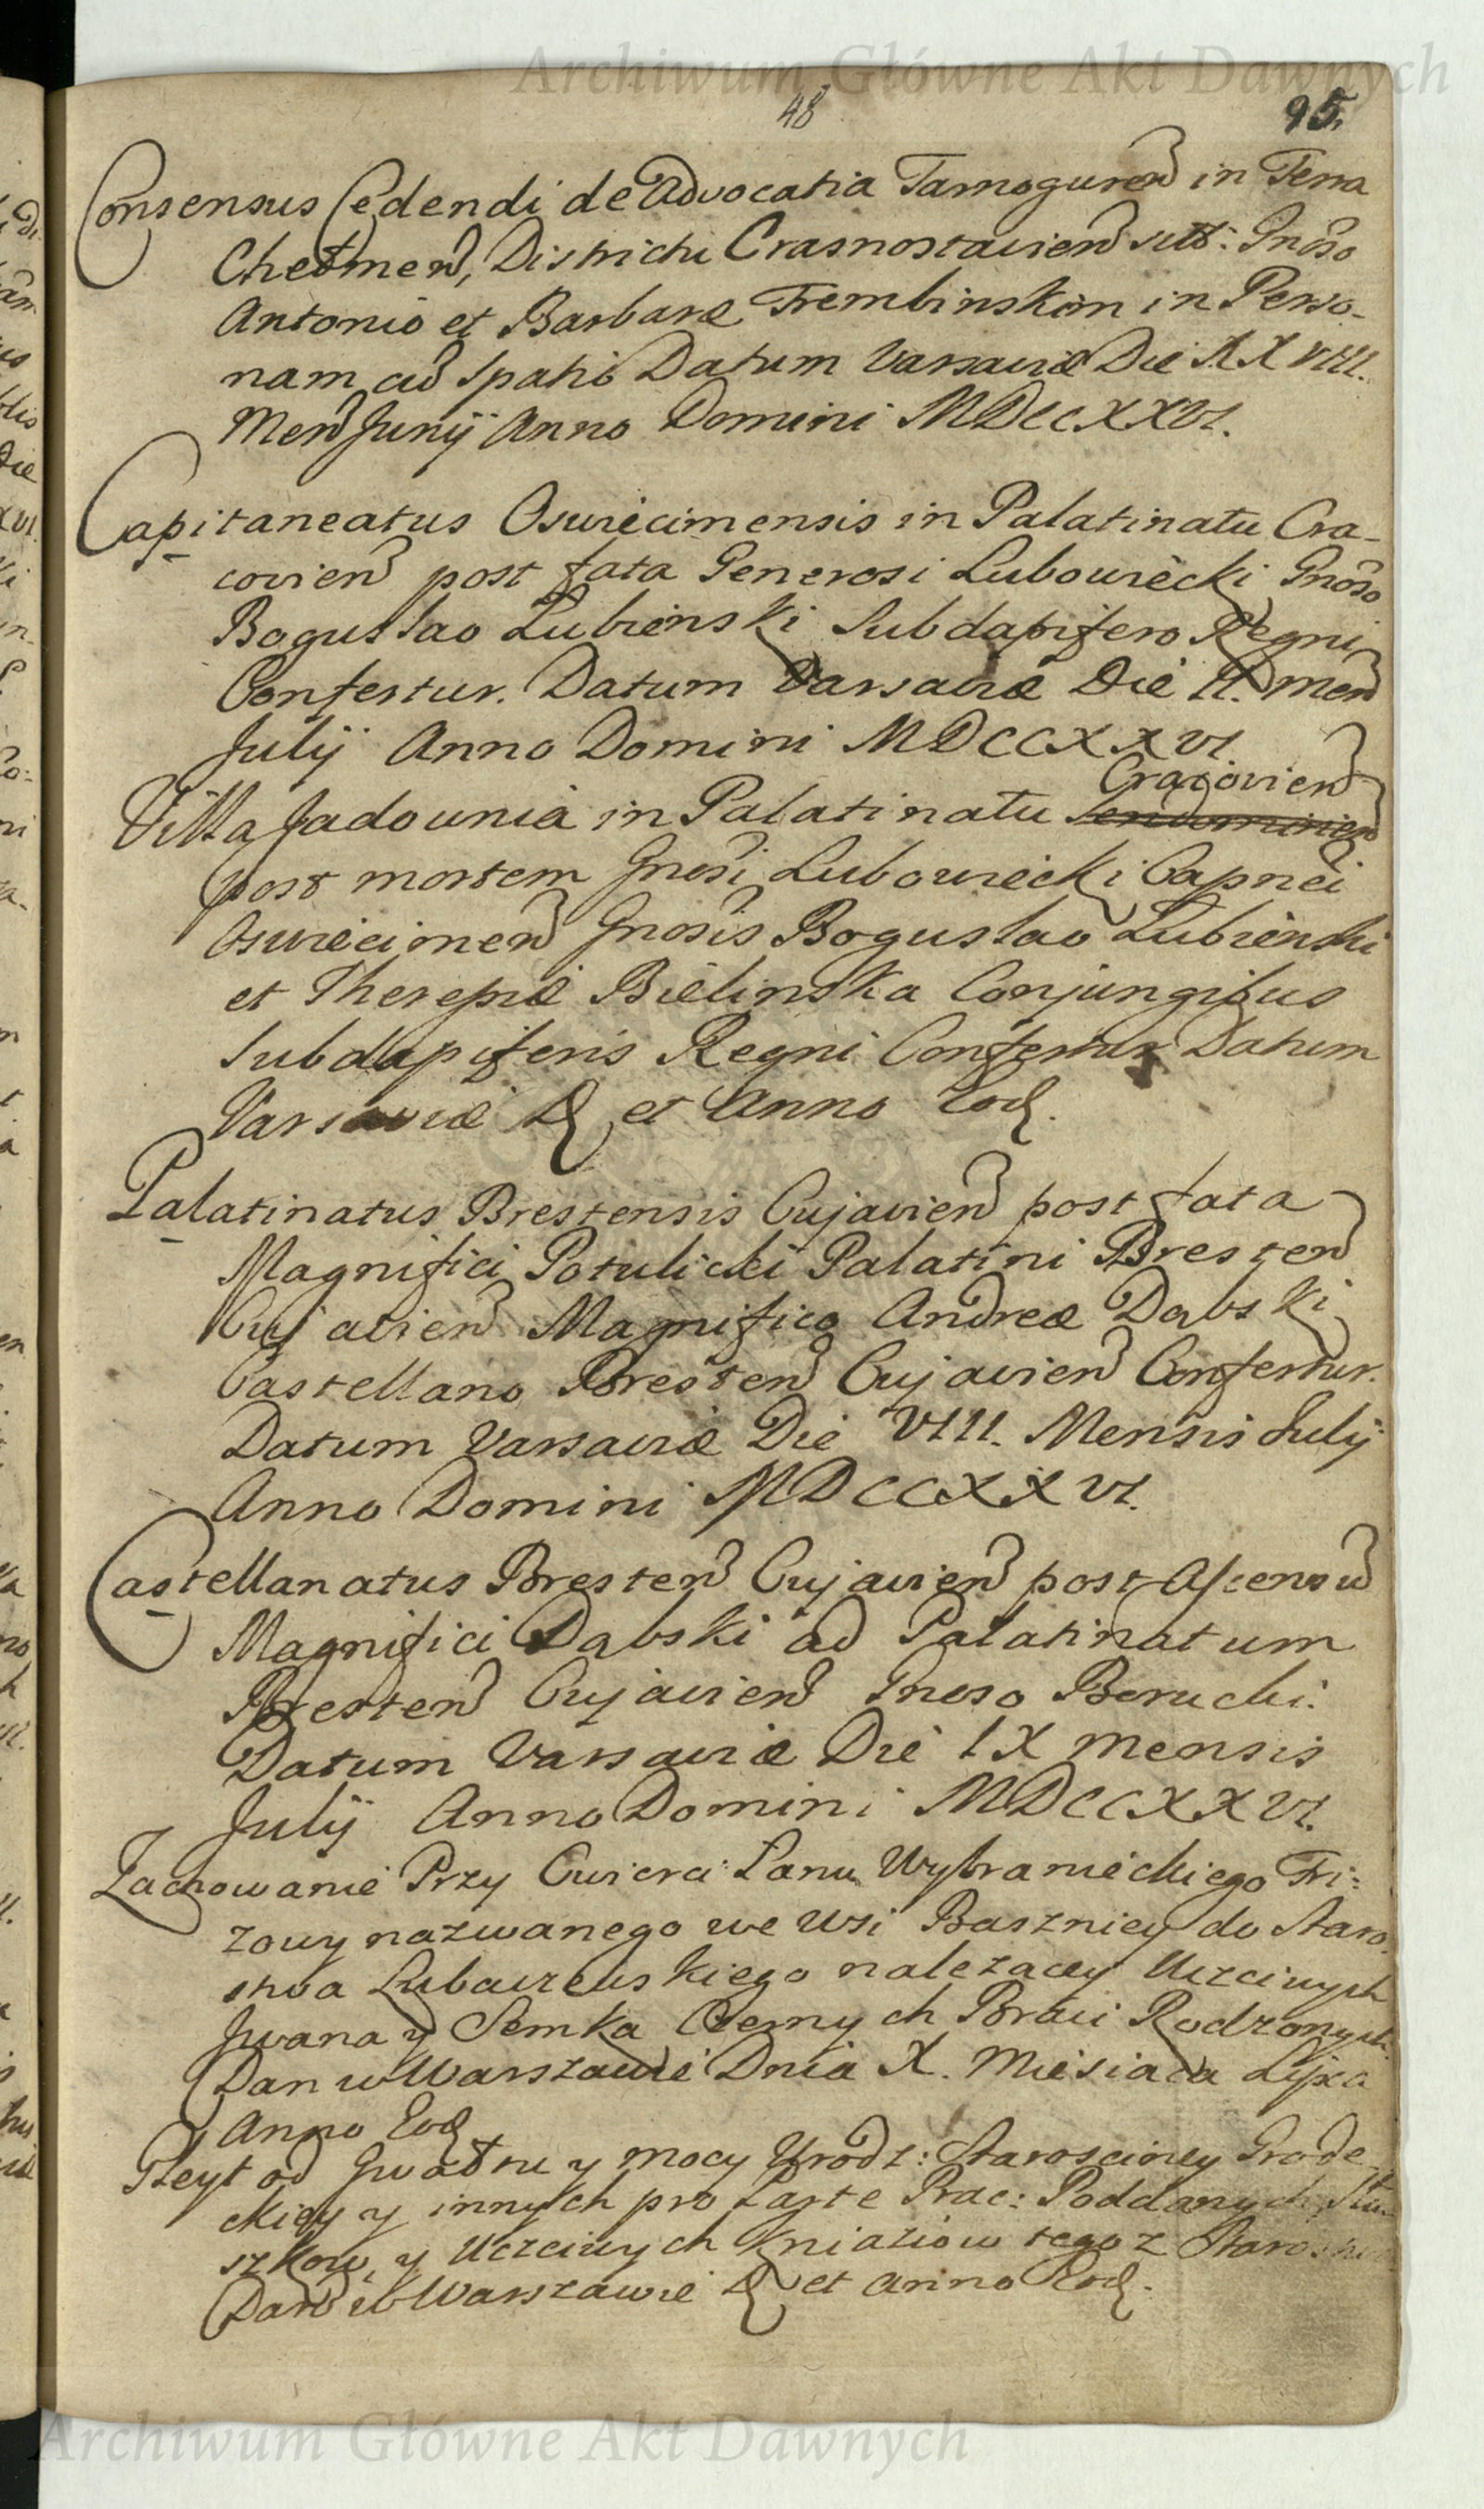 Archiwum Główne Akt Dawnych
48
95.
Consensus Cedendi de Advocatia Tarnoguren in Terra
Chełmen, Districtu Crasnostavien sitt: Gnoso
Antonio et Barbaræ Trembinskim in Perso-
nam cui Spatio Datum Varsaviæ Die XXVIII.
Men Junij Anno Domini MDCCXXVI.
Capitaneatus Osviecimensis in Palatinatu Cra-
covien post fata Generosi Lubowiecki Gnoso
Bogusłao Łubienski Subdapifero Regni
Confertur. Datum Varsaviæ Die II. Men
Julij Anno Domini MDCCXXVI.
Cracovien
Villa Jadownia in Palatinatu Sendomirien
post mortem Gnosi Lubowiecki Capnei
Osviecimen Gnosis Bogusłao Łubienski
et Theresiæ Bielinska Conjungibus
Subdapiferis Regni Confertur Datum
Varsaviæ D et Anno Eod.
Palatinatus Brestensis Cujavien post fata
Magnifici Potulicki Palatini Bresten
Cujavien Magnifico Andreæ Dąbski
Castellano Bresten Cujavien Confertur.
Datum Varsaviæ Die VIII. Mensis Julij
Anno Domini MDCCXXVI.
Castellanatus Bresten Cujavien post Ascensu
Magnifici Dąbski ad Palatinatum
Bresten Cujavien Gnoso Beruchi.
Datum Varsaviæ Die IX Mensis
Julij Anno Domini MDCCXXVI.
Zachowanie Przy Cwierci Łanu Wybranieckiego Fri:
zowy nazwanego we Wsi Baszniey do Staro
stwa Lubaczewskiego należącey Uczciwych
Jwana y Semka Czernych Braci Rodzonych.
Dan w Warszawie Dnia X. Miesiąca Lipca
Anno Eod
Gleyt od Gwałtu y mocy Urodz: Starosciney Grode
ckiey y innych pro parte Prac: Poddanych
szkow, y Uczciwych Kniaziow tegoz
Dan w Warszawie D et Anno Eod.
Archiwum Główne Akt Dawnych